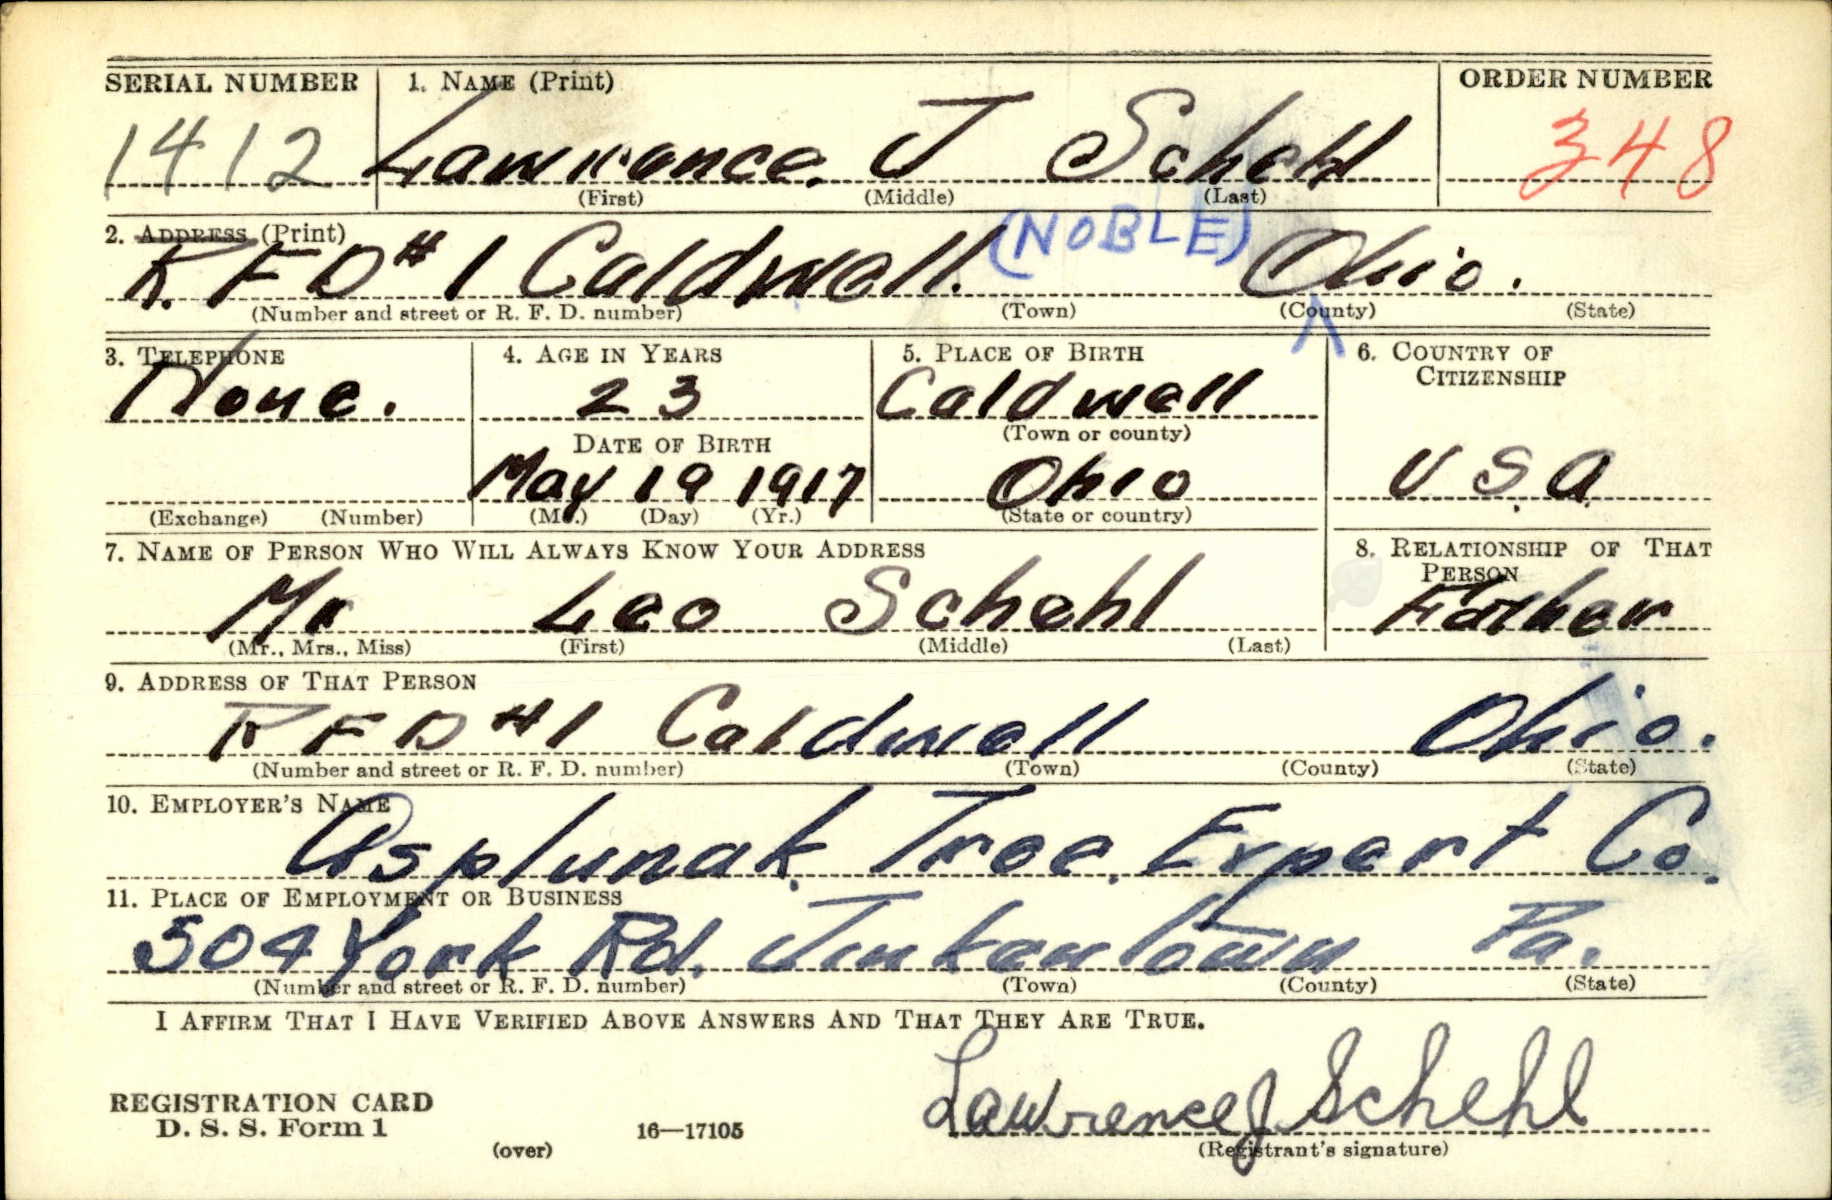 SERIAL NUMBER 1. NAME (Print) ORDER NUMBER
1412 Lawrence J Schehl 348
(First) (Middle) (Last)
2. ADDRESS (Print) (NOBLE)
R. F D # 1 Caldwell. Ohio.
(Number and street or R. F. D. number) (Town) (County) (State)
3. TELEPHONE 4. AGE IN YEARS 5. PLACE OF BIRTH 6. COUNTRY OF CITIZENSHIP
None. 23 Caldwell
(Town or county)
DATE OF BIRTH
May 19 1917 Ohio U S A
(Exchange) (Number) (Mo.) (Day) (Yr.) (State or country)
7. NAME OF PERSON WHO WILL ALWAYS KNOW YOUR ADDRESS 8. RELATIONSHIP OF THAT PERSON
Mr Leo Schehl Father
(Mr., Mrs., Miss) (First) (Middle) (Last)
9. ADDRESS OF THAT PERSON
R F D #1 Caldwell Ohio.
(Number and street or R. F. D. number) (Town) (County) (State)
10. EMPLOYER'S NAME
Asplunak Tree Expert Co.
11. PLACE OF EMPLOYMENT OR BUSINESS
504 York Rd. Jinkentown Pa.
(Number and street or R. F. D. number) (Town) (County) (State)
I AFFIRM THAT I HAVE VERIFIED ABOVE ANSWERS AND THAT THEY ARE TRUE.
REGISTRATION CARD
D. S. S. Form 1 16—17105 Lawrence J Schehl
(over) (Registrant's signature)